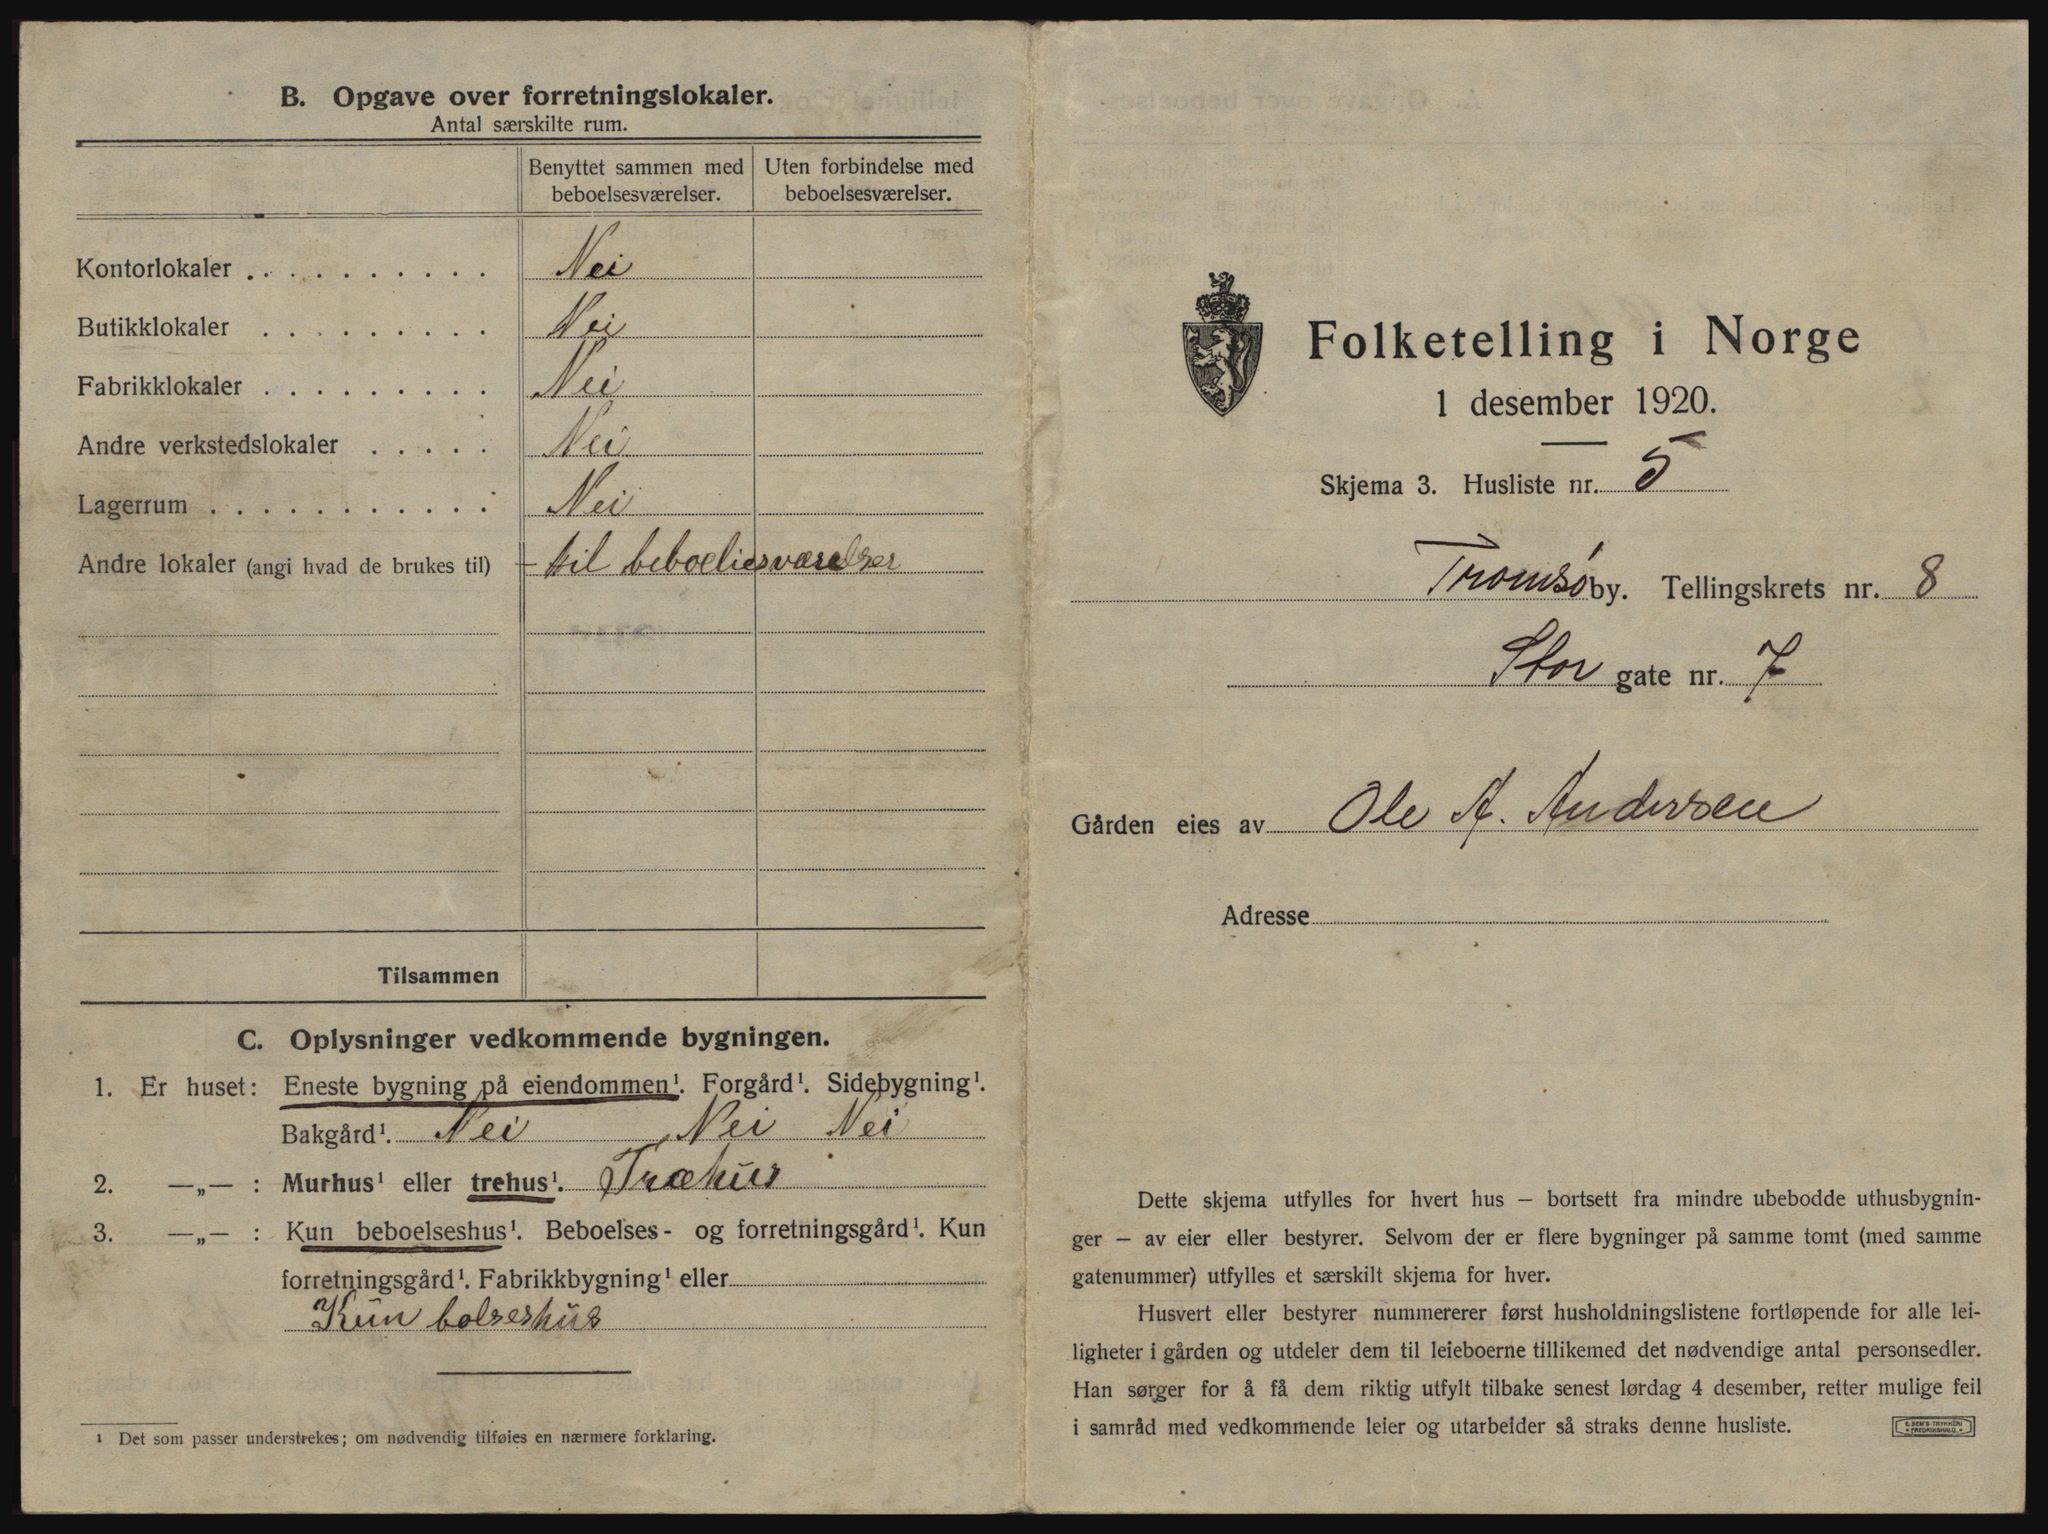 B. Opgave over forretningslokaler.
Antal særskilte rum.
Benyttet sammen med beboelsesværelser.
Uten forbindelse med beboelsesværelser.
Kontorlokaler . . . . . . . . . . Nei
Butikklokaler . . . . . . . . . Nei
Fabrikklokaler . . . . . . . . . Nei
Andre verkstedslokaler . . . . . Nei
Lagerrum . . . . . . . . . . . . Nei
Andre lokaler (angi hvad de brukes til) til beboeliesværelser
Tilsammen
C. Oplysninger vedkommende bygningen.
1. Er huset: Eneste bygning på eiendommen¹. Forgård¹. Sidebygning¹.
Bakgård¹. Nei Nei Nei
2. —„— : Murhus¹ eller trehus¹. Træhus
3. —„— : Kun beboelseshus¹. Beboelses- og forretningsgård¹. Kun
forretningsgård¹. Fabrikkbygning¹ eller
Kun bolseshus
¹ Det som passer understrekes; om nødvendig tilføies en nærmere forklaring.
Folketelling i Norge
1 desember 1920.
Skjema 3. Husliste nr. 5
Tromsø by. Tellingskrets nr. 8
Stor gate nr. 7
Gården eies av Ole A. Andersen
Adresse
Dette skjema utfylles for hvert hus – bortsett fra mindre ubebodde uthusbygnin-
ger – av eier eller bestyrer. Selvom der er flere bygninger på samme tomt (med samme
gatenummer) utfylles et særskilt skjema for hver.
Husvert eller bestyrer nummererer først husholdningslistene fortløpende for alle lei-
ligheter i gården og utdeler dem til leieboerne tillikemed det nødvendige antal personsedler.
Han sørger for å få dem riktig utfylt tilbake senest lørdag 4 desember, retter mulige feil
i samråd med vedkommende leier og utarbeider så straks denne husliste.
E. SEM'S TRYKKERI
FREDRIKSHALD